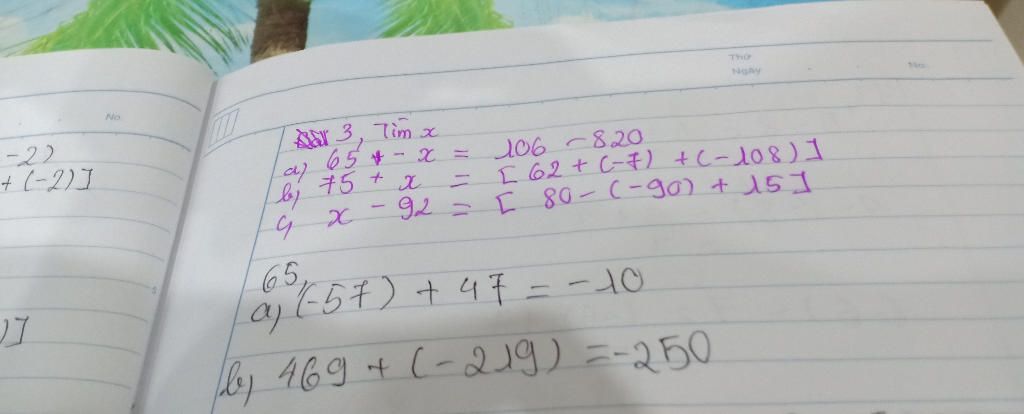 No.
-2)
+ (-2)]
)]
Thứ
Ngày
No.
3, Tìm x
a) 65 - x = 106 - 820
b) 75 + x = [ 62 + (-7) + (-108) ]
c) x - 92 = [ 80 - (-90) + 15 ]
65,
a) (-57) + 47 = -10
b) 469 + (-219) = -250